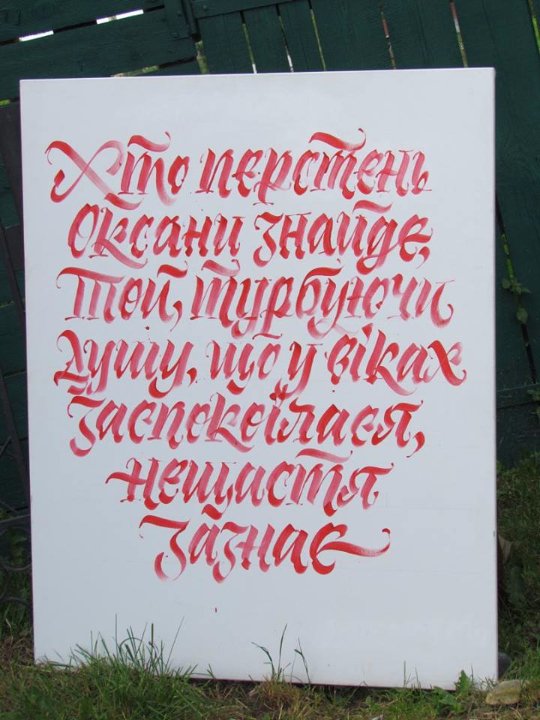 Хто перстень
Оксани знайде,
той, турбуючи
душу, що у віках
заспокоїлася,
нещастя
зазнає